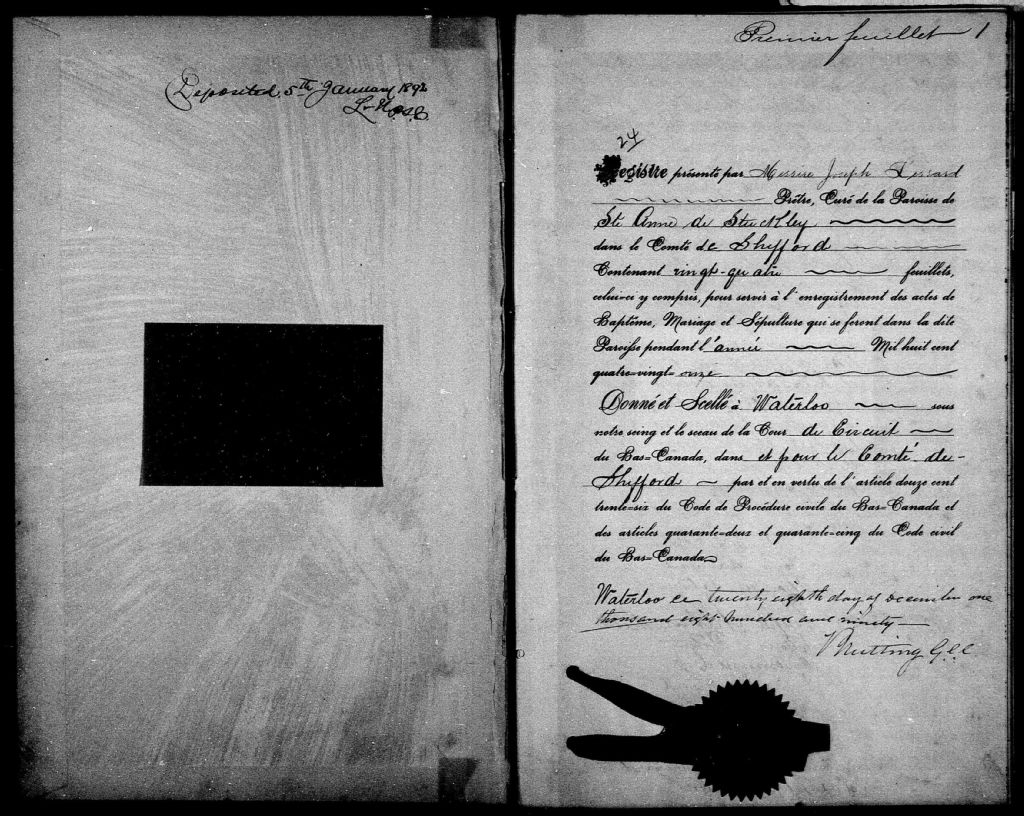 Deposited, 5th January 1892
Premier feuillet 1
24
Registre présenté par Messire Joseph
Prêtre, Curé de la Paroisse de
Ste Anne de Stuckley
dans le Comté de Shefford
Contenant vingt-quatre feuillets,
celui-ci y compris, pour servir à l'enregistrement des actes de
Baptême, Mariage et Sépulture qui se feront dans la dite
Paroisse pendant l'année Mil huit cent
quatre=vingt= onze
Donné et Scellé à Waterloo sous
notre seing et le sceau de la Cour de Circuit
du Bas=Canada, dans et pour le Comté de
Shefford par et en vertu de l'article douze cent
trente=six du Code de Procédure civile du Bas=Canada et
des articles quarante=deux et quarante=cinq du Code civil
du Bas=Canada
Waterloo twenty eighth day of december one
thousand eight hundred and ninety